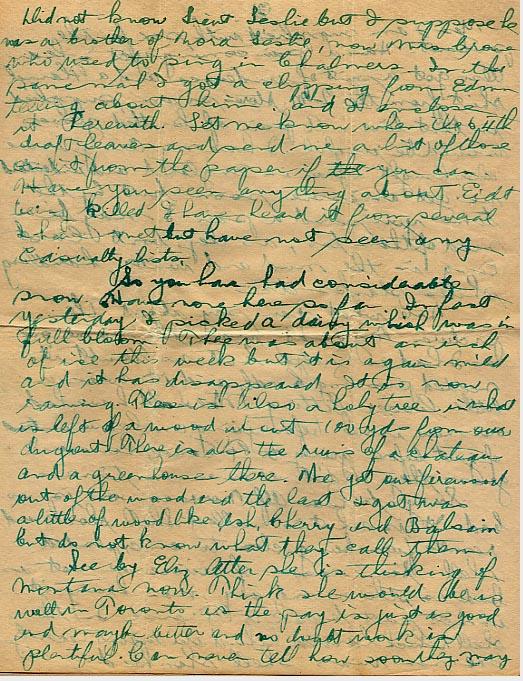 Did not know Lieut Leslie but I suppose he
was a brother of Nora Leslie, now Mrs Grove
who used to sing in Chalmers. In the
same mail I got a clipping from Edm
telling about him, and I enclose
it herewith. Let me know when the 64th
draft leaves and send me a list of those
on it from the paper if you can
Have you seen anything about Eidt
being killed I have heard it from several
I have met but have not seen any
Casualty lists.
So you have had considerable
snow. Have none here so far. In fact
yesterday I picked a daisy which was in
full bloom. There was about an inch
of ice this week but it is again mild
and it has disappeared. It is now
raining. There is also a holy tree in what
is left of a wood about 100 yds from our
dugout. There is also the ruins of a chateau
and a greenhouse there. We get our firewood
out of the wood and the last I got was
a little of wood like ash, Cherry and Balsam
but do not know what they call them.
See by Eliz. letter she is thinking of
Montana now. Think she would be as
well in Toronto as the pay is just as good
and maybe better and no doubt work is
plentiful. Can never tell how soon they may